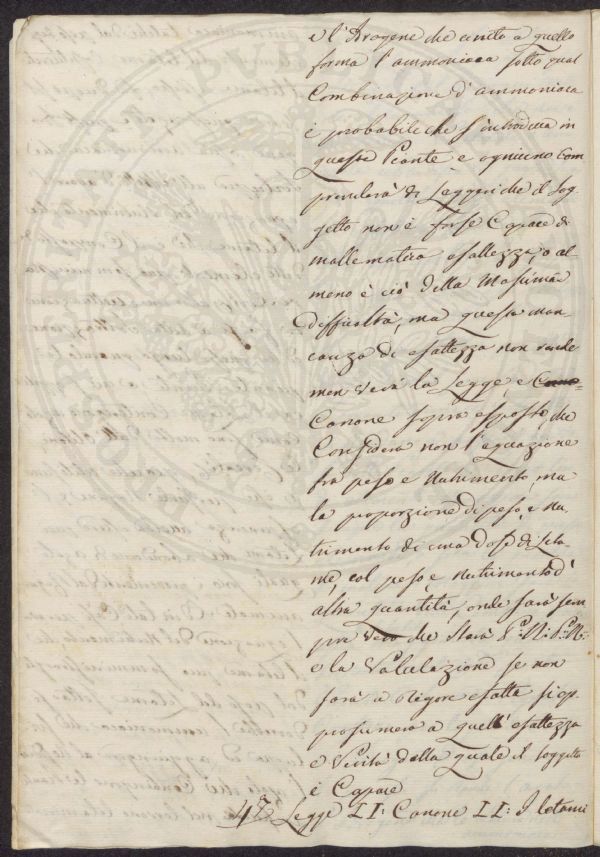 e l'Irogene che unito a quello
forma l'ammoniaca sotto qual
Combinazione d'ammoniaca
è probabile che s'introduca in
queste Piante e ogniuno com
prenderà di Leggeri che il sog
getto non è forse Capace di
mattematica esattezza, o al
meno è ciò della Massima
difficoltà, ma questa man
canza di esattezza non rende
men vera la Legge, e
Canone sopra esposto, che
Considera non l'equazione
fra peso e Nutrimento, ma
la proporzione di peso, e nu
trimento di una dose di Leta
me, col peso, e nutrimento d'
altra quantità, onde sarà sem
pre vero che starà P: N: P: N:
e la Valutazione se non
sarà a Rigore esatta si ap
prossimerà a quell'esattezza
e Verità della quale il soggetto
è Capace
47 Legge LI: Canone LI: I letami